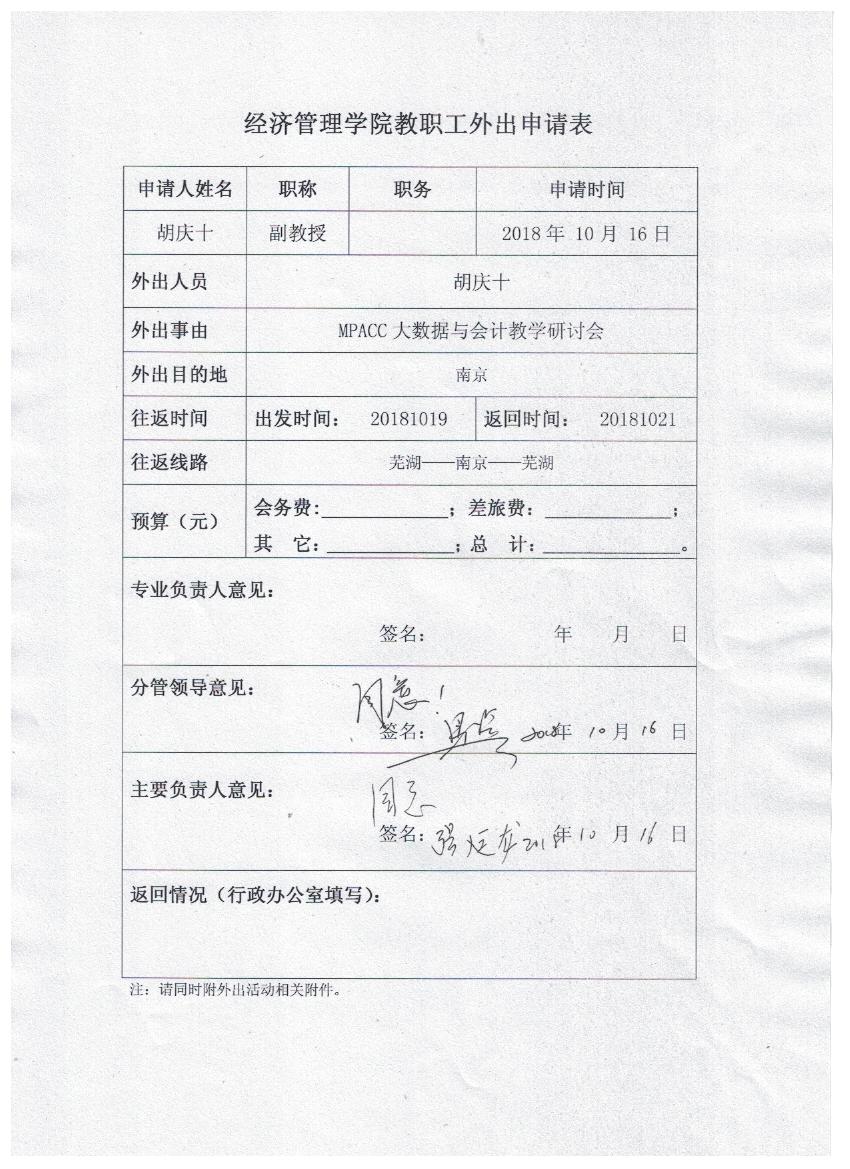 经济管理学院教职工外出申请表
申请人姓名 职称 职务 申请时间
胡庆十 副教授 2018年 10月 16日
外出人员 胡庆十
外出事由 MPACC大数据与会计教学研讨会
外出目的地 南京
往返时间 出发时间： 20181019 返回时间： 20181021
往返线路 芜湖——南京——芜湖
预算（元） 会务费:____________；差旅费：____________；
其 它：____________；总 计：____________。
专业负责人意见：
签名： 年 月 日
分管领导意见：
同意！
签名： 2018年 10月 16日
主要负责人意见：
同意
签名： 张廷龙 2018年 10月 16日
返回情况（行政办公室填写）：
注：请同时附外出活动相关附件。